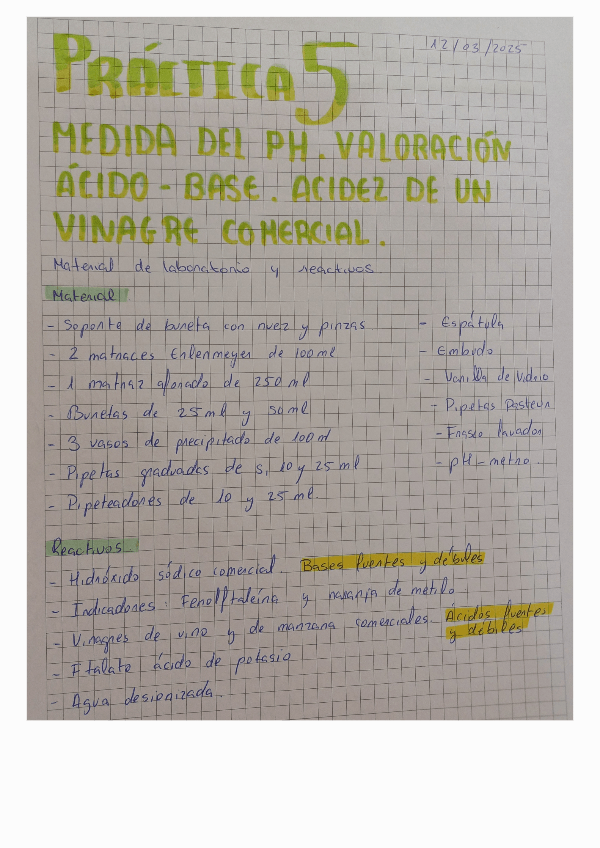 12/03/2025
PRÁCTICA 5
MEDIDA DEL PH. VALORACIÓN
ÁCIDO - BASE. ACIDEZ DE UN
VINAGRE COMERCIAL.
Material de laboratorio y reactivos
Material
- Soporte de bureta con nuez y pinzas
- 2 matraces Erlenmeyer de 100 ml
- 1 matraz aforado de 250 ml
- Buretas de 25 ml y 50 ml
- 3 vasos de precipitado de 100 ml
- Pipetas graduadas de 5, 10 y 25 ml
- Pipeteadores de 10 y 25 ml
- Espátula
- Embudo
- Varilla de vidrio
- Pipetas Pasteur
- Frasco lavador
- pH-metro
Reactivos
- Hidróxido sódico comercial. Bases fuertes y débiles
- Indicadores: Fenolftaleína y naranja de metilo
- Vinagres de vino y de manzana comerciales. Ácidos fuertes
y débiles
- Ftalato ácido de potasio
- Agua desionizada.